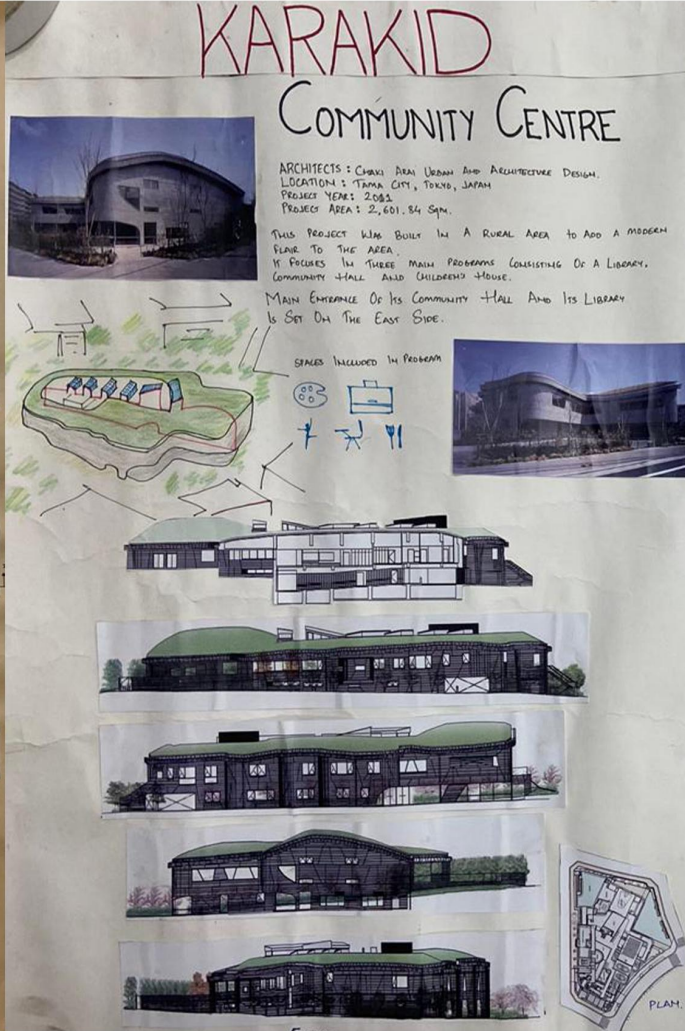 KARAKID
COMMUNITY CENTRE
ARCHITECTS : CHIAKI ARAI URBAN AND ARCHITECTURE DESIGN.
LOCATION : TAMA CITY, TOKYO, JAPAN
PROJECT YEAR: 2011
PROJECT AREA: 2,601.84 Sqm.
THIS PROJECT WAS BUILT IN A RURAL AREA to ADD A MODERN
FLAIR TO THE AREA.
IT FOCUSES IN THREE MAIN PROGRAMS CONSISTING OF A LIBRARY,
COMMUNITY HALL AND CHILDREN'S HOUSE.
MAIN ENTRANCE OF ITS COMMUNITY HALL AND ITS LIBRARY
IS SET ON THE EAST SIDE.
SPACES INCLUDED IN PROGRAM
PLAN.